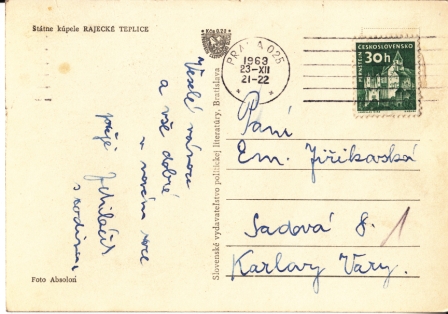 Státne kúpele RAJECKÉ TEPLICE
Kčs 0,20
PRAHA 025
1963
23-XII
21-22
ČESKOSLOVENSKO
PERNŠTEJN
30h
Veselé vánoce
a vše dobré
v novém roce
přeje
s rodinou
Slovenské vydavateľstvo politickej literatúry, Bratislava
Paní
Em. Jiřikovská
Sadová 8.
1
Karlovy Vary.
Foto Absolon